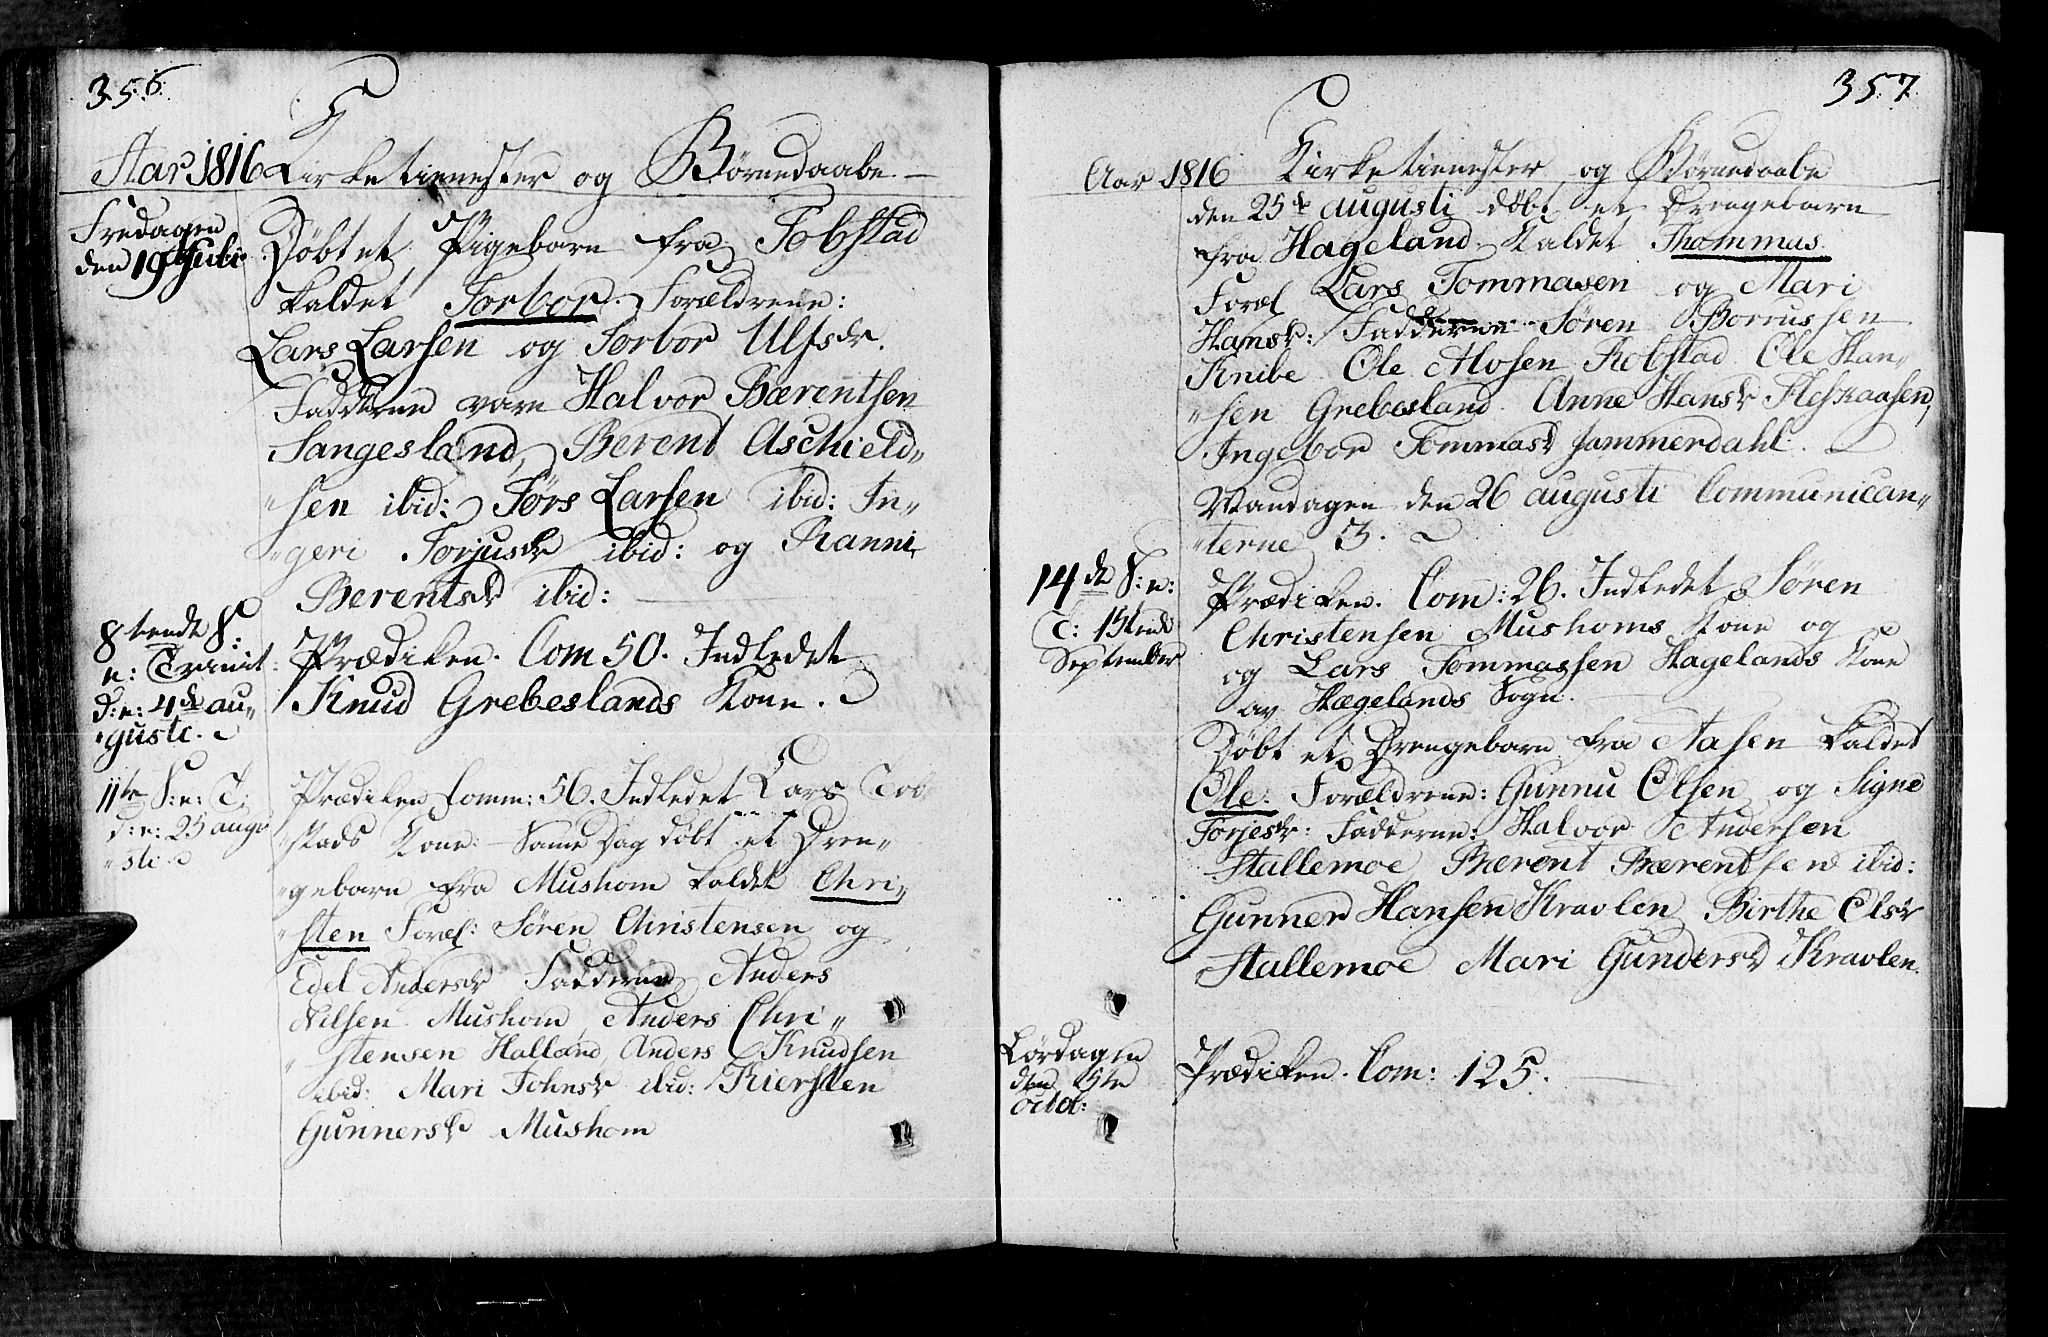 356.
Aar 1816 Kirketienester og Børnedaabe
Fredagen
den 19de Juli
Døbt et Pigebarn fra Tobstad
kaldet Torbor. Forældrene:
Lars Larsen og Torbor Ulfsdr.
Fadderne vare Halvor Bærentsen
Sangesland, Berent Aschield„
„sen ibid: Jørs Larsen ibid: In„
„geri Torjusdr ibid: og Ranni
Berentsdr ibid:
8tende S.
n: Trinit:
d: n: 4de au„
„gusti.
Prædiken. Com 50. Indledet
Knud Grebeslands Kone.
11te S: n: T:
d: n: 25 augu
„sti
Prædiken Comm: 56. Indledet Lars Tob
„stads Kone. Samme Dag døbt et Dren„
„gebarn fra Mushom kaldet Chri„
„sten Foræl: Søren Christensen og
Edel Andersdr Fadderne Anders
Nilsen Mushom, Anders Chri„
„stensen Halland, Anders Knudsen
ibid: Mari Johnsdr ibid: Kiersten
Gunnersdr Mushom
357
Aar 1816 Kirketienester og Børnedaabe
den 25de augusti døbt et Drengebarn
fra Hageland kaldet Thommas
Foræl Lars Tommasen og Mari
Hansdr: Fadderne Søren Borrussen
Knibe Ole Alosen Robstad Ole Han„
„sen Grebesland. Anne Hansdr Fleskaasen,
Ingebor Tommasdr Jammerdahl.
Mandagen den 26 augusti Communican„
„terne 3.
14de S: n:
T: 15tende
September
Prædiken. Com: 26. Indledet Søren
Christensen Mushoms Kone og
og Lars Tommassen Hagelands Kone
av Hægelands Sogn.
Døbt et Drengebarn fra Aasen kaldet
Ole. Forældrene: Gunnu Olsen og Signe
Torjesdr: Fadderne: Halvor Andersen
Stallemoe Berent Bærentsen ibid:
Gunner Hansen Kravlen Birthe Olsdr
Stallemoe Mari Gundersdr Kravlen.
Lørdagen
den 5te
octob:
Prædiken. Com: 125.